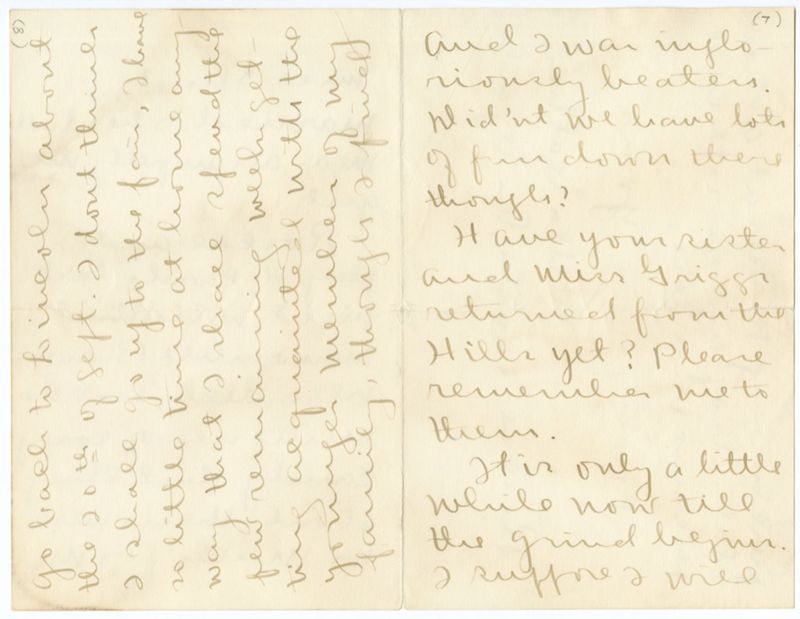 (7)
And I was inglo-
riously beaten.
Did'nt we have lots
of fun down there
though?
Have your sister
and Miss Griggs
returned from the
Hills yet? Please
remember me to
them.
It is only a little
while now till
the grind begins.
I suppose I will
(8)
go back to Lincoln about
the 20th of Sept. I dont think
I shall go up to the fair, I have
so little time at home any
way that I shall spend the
few remaining weeks get-
ting acquainted with the
younger members of my
family, though I find